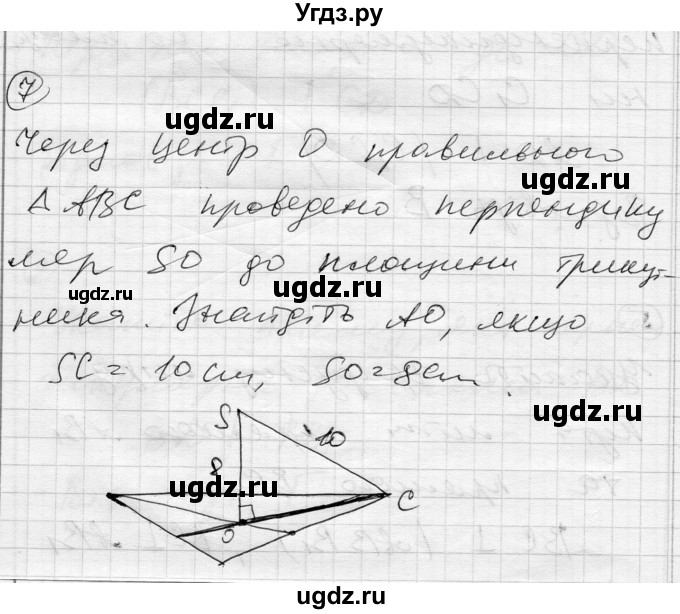 Угдз.ру
7
Через центр О правильного
Δ ABC проведено перпендику
ляр SO до площини трикут-
ника. Знайдіть AO, якщо
SC = 10 cm, SO = 8 cm.
S
10
8
C
O
ugdz.ru
ugdz.ru
ugdz.ru
ugdz.ru
ugdz.ru
ugdz.ru
ugdz.ru